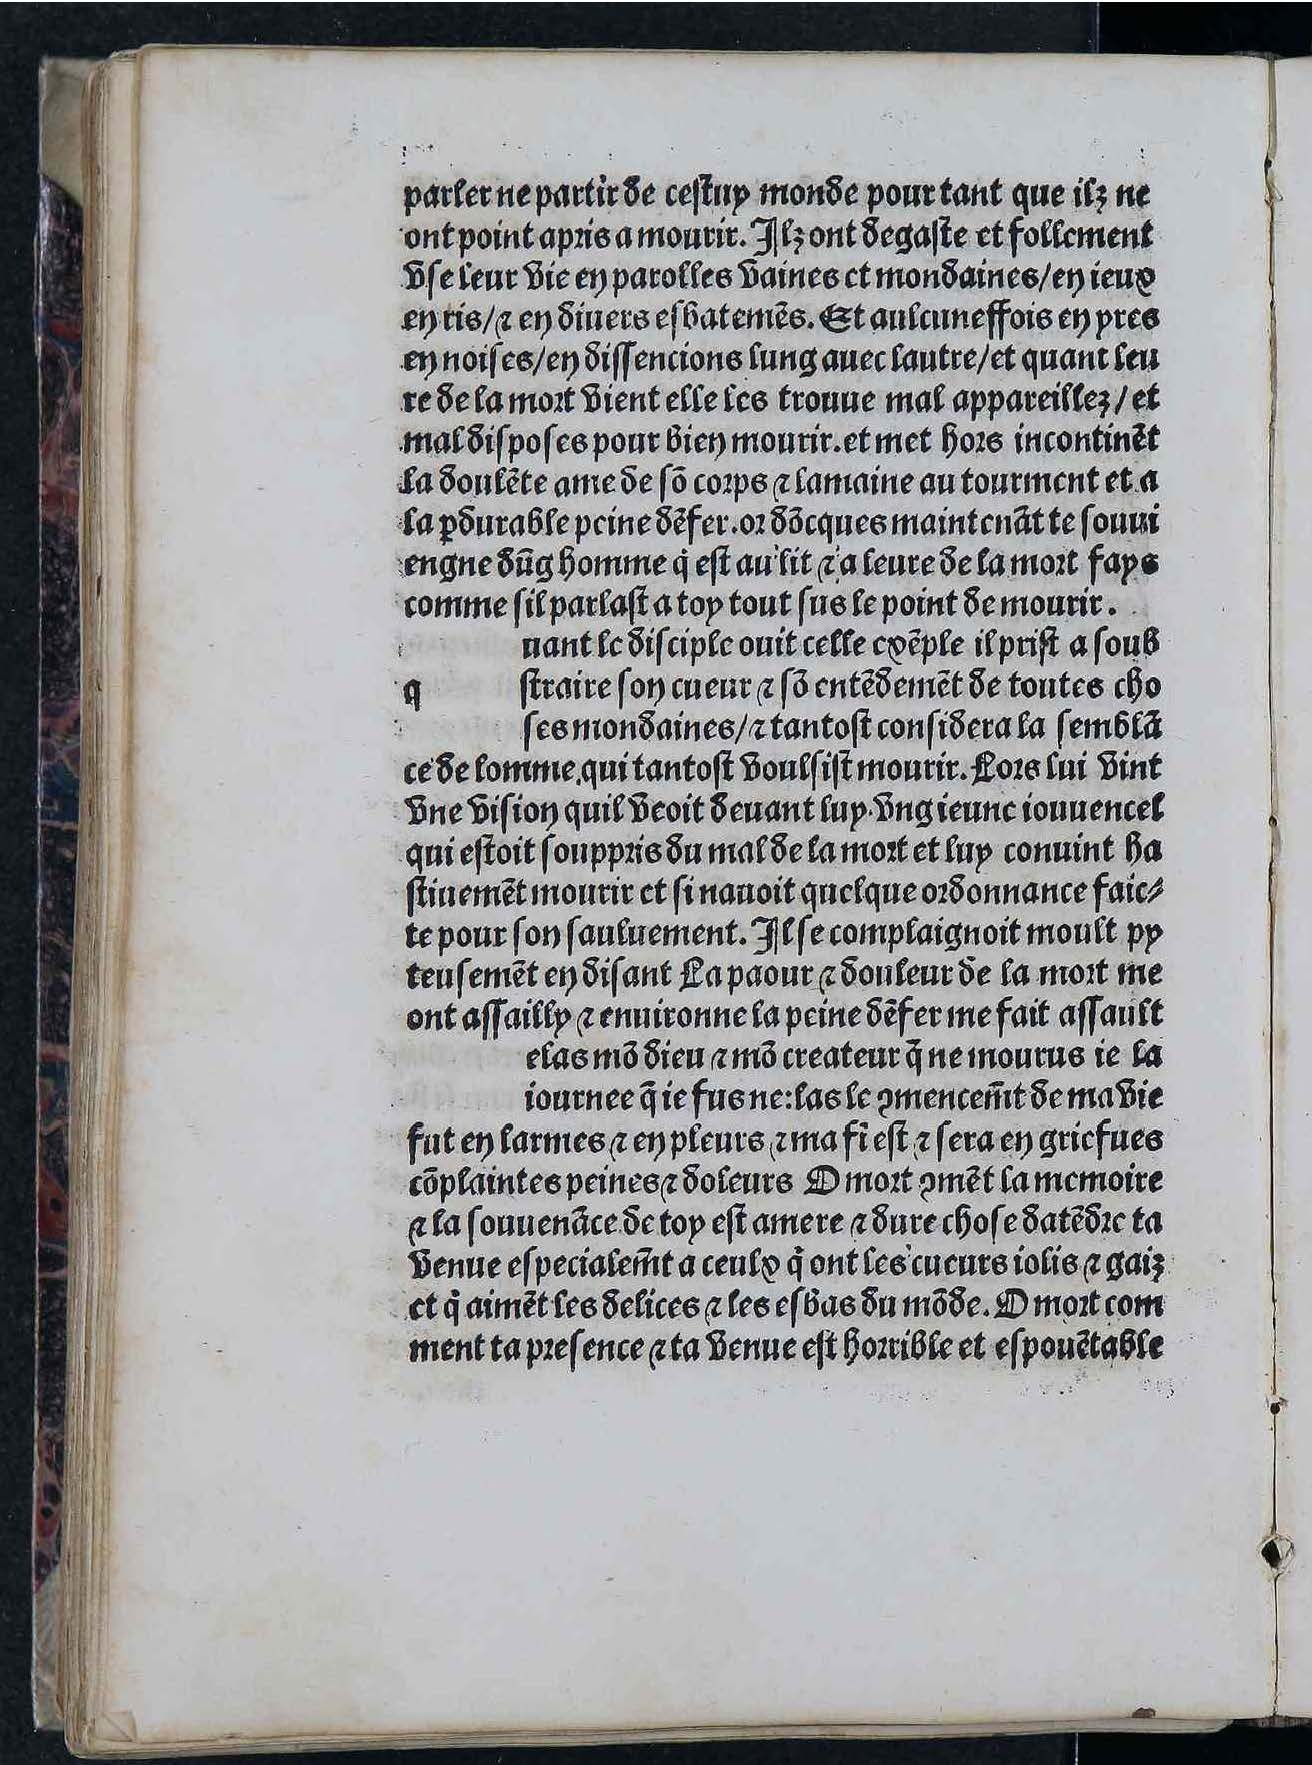 parler ne partir de cestuy monde pour tant que ilz ne
ont point apris a mourir. Ilz ont degaste et follement
vse leur vie en parolles vaines et mondaines/en ieux
en ris/⁊ en diuers esbatemēs. Et aulcuneffois en yres
en noises/en dissencions lung auec lautre/et quant leu
re de la mort vient elle les trouue mal appareillez/et
mal disposes pour bien mourir. et met hors incontinēt
la doulēte ame de sō corps ⁊ lamaine au tourment et a
la ꝑdurable peine dēfer. or dōcques maintenāt te souui
engne dūg homme q̇ est au lit ⁊ a leure de la mort fays
comme sil parlast a toy tout sus le point de mourir.
uant le disciple ouit celle exēple il prist a soub
q straire son cueur ⁊ sō entēdemēt de toutes cho
ses mondaines/⁊ tantost considera la semblā
ce de lomme qui tantost voulsist mourir. Lors lui vint
vne vision quil veoit deuant luy. vng ieune iouuencel
qui estoit souppris du mal de la mort et luy conuint ha
stiuemēt mourir et si nauoit quelque ordonnance faic⸗
te pour son sauluement. Il se complaignoit moult py
teusemēt en disant La paour ⁊ douleur de la mort me
ont assailly ⁊ enuironne la peine dēfer me fait assault
elas mō dieu ⁊ mō createur q̄ ne mourus ie la
iournee q̄ ie fus ne: las le ꝯmencem̄t de ma vie
fut en larmes ⁊ en pleurs ⁊ ma fī est ⁊ sera en griefues
cōplaintes peines ⁊ doleurs O mort ꝯmēt la memoire
⁊ la souuenāce de toy est amere ⁊ dure chose datēdre ta
venue especialem̄t a ceulx q̇ ont les cueurs iolis ⁊ gaiz
et q̇ aimēt les delices ⁊ les esbas du mōde. O mort com
ment ta presence ⁊ ta venue est horrible et espouētable